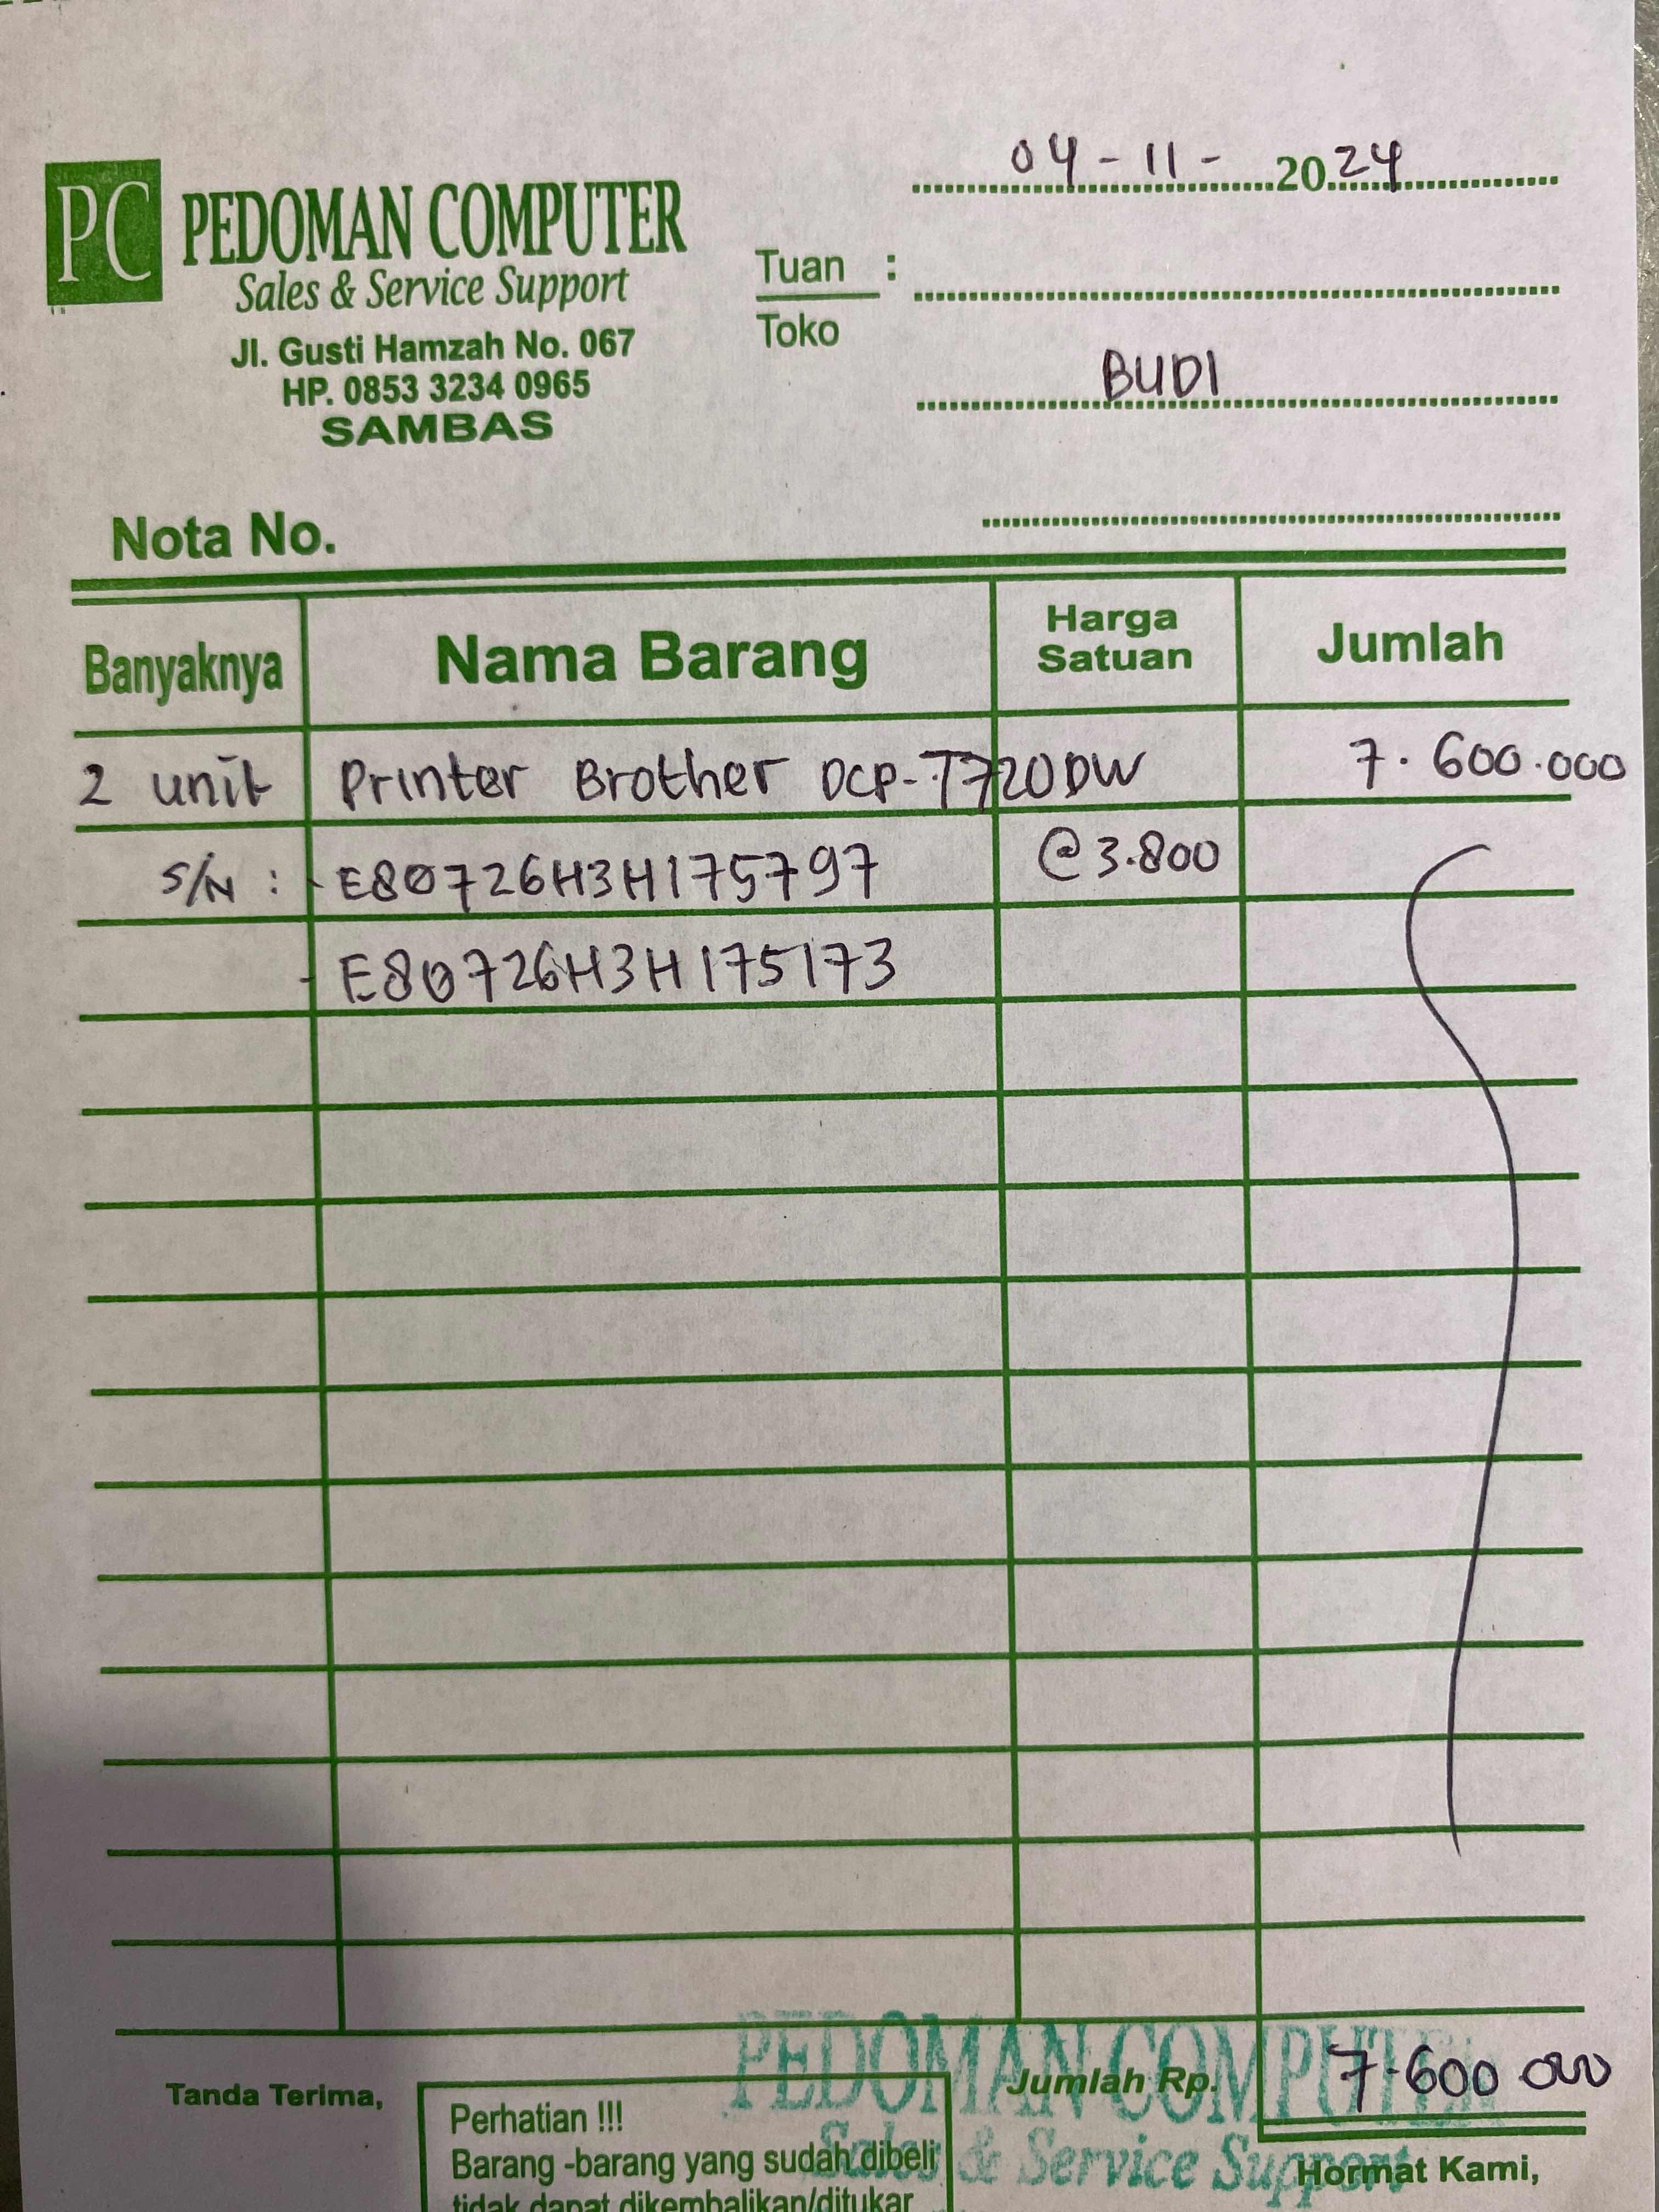 04 - 11 - 2024
PC
PEDOMAN COMPUTER
Sales & Service Support
Jl. Gusti Hamzah No. 067
HP. 0853 3234 0965
SAMBAS
Tuan :
Toko
BUDI
Nota No.
Banyaknya Nama Barang Harga Satuan Jumlah
2 unit Printer Brother DCP-T720DW 7.600.000
S/N : - E80726H3H175797 @3.800
- E80726H3H175173
PEDOMAN COMPUTER
Sales & Service Support
Jumlah Rp. 7.600 000
Tanda Terima,
Perhatian !!!
Barang -barang yang sudah dibeli
tidak dapat dikembalikan/ditukar
Hormat Kami,